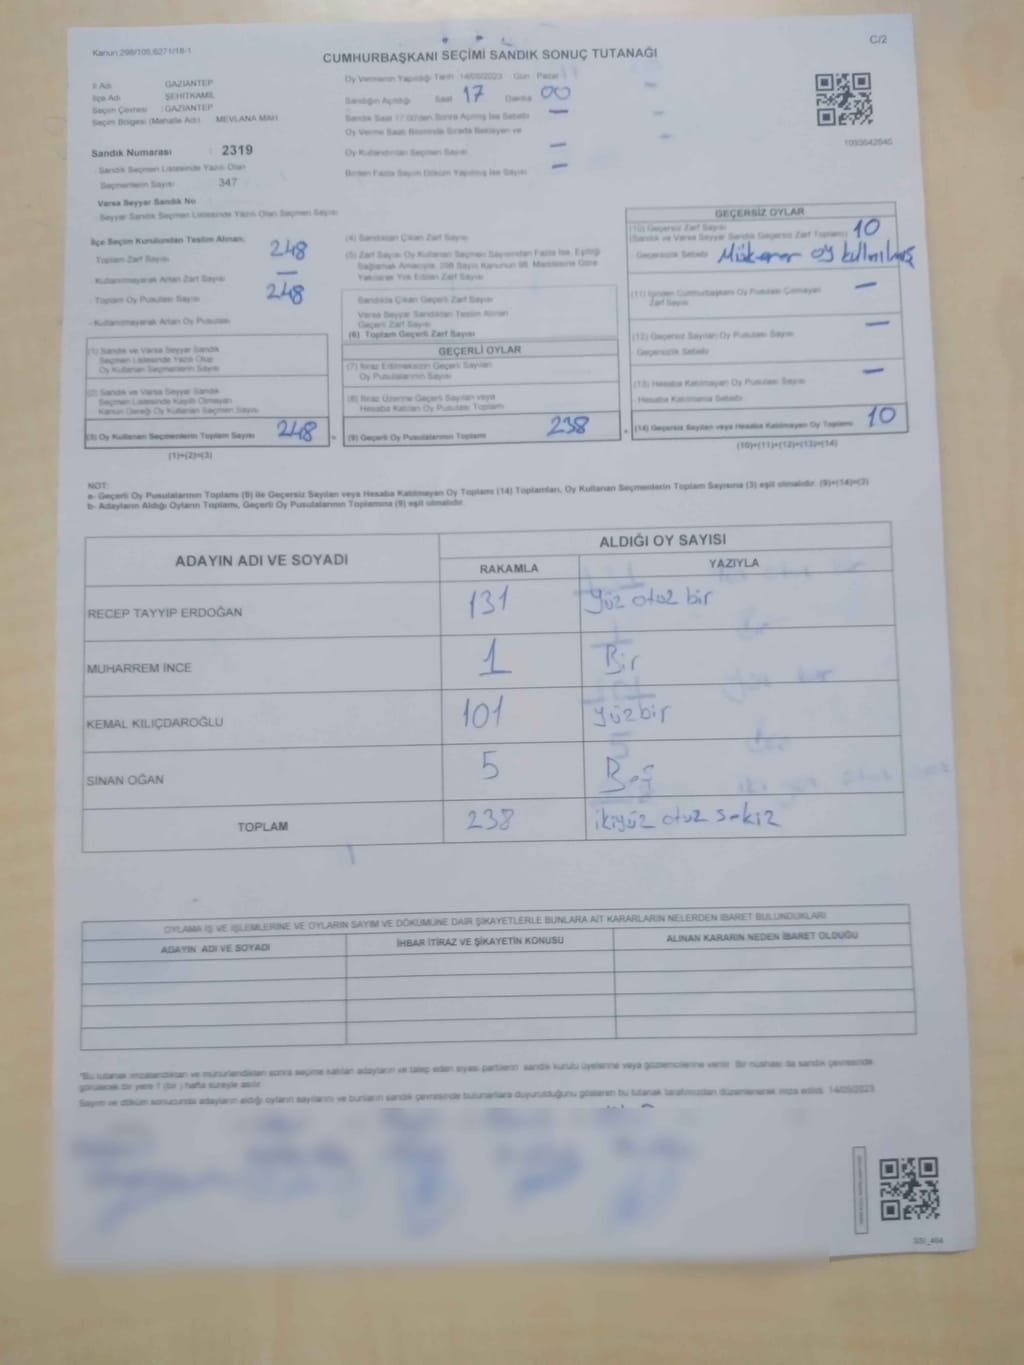 Kanun:298/105;6271/18-1
C/2
CUMHURBAŞKANI SEÇİMİ SANDIK SONUÇ TUTANAĞI
İl Adı GAZİANTEP
İlçe Adı ŞEHİTKAMİL
Seçim Çevresi : GAZİANTEP
Seçim Bölgesi (Mahalle Adı) MEVLANA MAH.
Sandık Numarası : 2319
Sandık Seçmen Listesinde Yazılı Olan
Seçmenlerin Sayısı 347
Varsa Seyyar Sandık No
Seyyar Sandık Seçmen Listesinde Yazılı Olan Seçmen Sayısı
Oy Vermenin Yapıldığı Tarih 14/05/2023 Gün : Pazar
Sandığın Açıldığı Saat 17 Dakika 00
Sandık Saat 17.00'den Sonra Açılmış İse Sebebi —
Oy Verme Saati Bitiminde Sırada Bekleyen ve
Oy Kullandırılan Seçmen Sayısı —
Birden Fazla Sayım Döküm Yapılmış İse Sayısı —
1093642640
İlçe Seçim Kurulundan Teslim Alınan;
Toplam Zarf Sayısı 248
- Kullanılmayarak Artan Zarf Sayısı —
- Toplam Oy Pusulası Sayısı 248
- Kullanılmayarak Artan Oy Pusulası
(1) Sandık ve Varsa Seyyar Sandık
Seçmen Listesinde Yazılı Olup
Oy Kullanan Seçmenlerin Sayısı
(2) Sandık ve Varsa Seyyar Sandık
Seçmen Listesinde Kayıtlı Olmayan
Kanun Gereği Oy Kullanan Seçmen Sayısı
(3) Oy Kullanan Seçmenlerin Toplam Sayısı 248
(1)+(2)=(3)
(4) Sandıktan Çıkan Zarf Sayısı
(5) Zarf Sayısı Oy Kullanan Seçmen Sayısından Fazla İse, Eşitliği
Sağlamak Amacıyla, 298 Sayılı Kanunun 98. Maddesine Göre
Yakılarak Yok Edilen Zarf Sayısı
Sandıkta Çıkan Geçerli Zarf Sayısı
Varsa Seyyar Sandıktan Teslim Alınan
Geçerli Zarf Sayısı
(6) Toplam Geçerli Zarf Sayısı
GEÇERLİ OYLAR
(7) İtiraz Edilmeksizin Geçerli Sayılan
Oy Pusulalarının Sayısı
(8) İtiraz Üzerine Geçerli Sayılan veya
Hesaba Katılan Oy Pusulası Toplamı
(9) Geçerli Oy Pusulalarının Toplamı 238
GEÇERSİZ OYLAR
(10) Geçersiz Zarf Sayısı
(Sandık ve Varsa Seyyar Sandık Geçersiz Zarf Toplamı) 10
Geçersizlik Sebebi Mükerrer oy kullnılmış
(11) İçinden Cumhurbaşkanı Oy Pusulası Çıkmayan
Zarf Sayısı —
(12) Geçersiz Sayılan Oy Pusulası Sayısı —
Geçersizlik Sebebi
(13) Hesaba Katılmayan Oy Pusulası Sayısı —
- Hesaba Katılmama Sebebi
(14) Geçersiz Sayılan veya Hesaba Katılmayan Oy Toplamı 10
(10)+(11)+(12)+(13)=(14)
NOT:
a- Geçerli Oy Pusulalarının Toplamı (9) ile Geçersiz Sayılan veya Hesaba Katılmayan Oy Toplamı (14) Toplamları, Oy Kullanan Seçmenlerin Toplam Sayısına (3) eşit olmalıdır. (9)+(14)=(3)
b- Adayların Aldığı Oyların Toplamı, Geçerli Oy Pusulalarının Toplamına (9) eşit olmalıdır.
ADAYIN ADI VE SOYADI
ALDIĞI OY SAYISI
RAKAMLA YAZIYLA
RECEP TAYYİP ERDOĞAN 131 yüz otuz bir
MUHARREM İNCE 1 Bir
KEMAL KILIÇDAROĞLU 101 yüzbir
SİNAN OĞAN 5 Beş
TOPLAM 238 ikiyüz otuz sekiz
OYLAMA İŞ VE İŞLEMLERİNE VE OYLARIN SAYIM VE DÖKÜMÜNE DAİR ŞİKAYETLERLE BUNLARA AİT KARARLARIN NELERDEN İBARET BULUNDUKLARI
ADAYIN ADI VE SOYADI İHBAR İTİRAZ VE ŞİKAYETİN KONUSU ALINAN KARARIN NEDEN İBARET OLDUĞU
*Bu tutanak imzalandıktan ve mühürlendikten sonra seçime katılan adayların ve talep eden siyasi partilerin sandık kurulu üyelerine veya gözlemcilerine verilir. Bir nüshası da sandık çevresinde
görülecek bir yere 1 (bir ) hafta süreyle asılır.
Sayım ve döküm sonucunda adayların aldığı oyların sayılarını ve bunların sandık çevresinde bulunanlara duyurulduğunu gösteren bu tutanak tarafımızdan düzenlenerek imza edildi. 14/05/2023